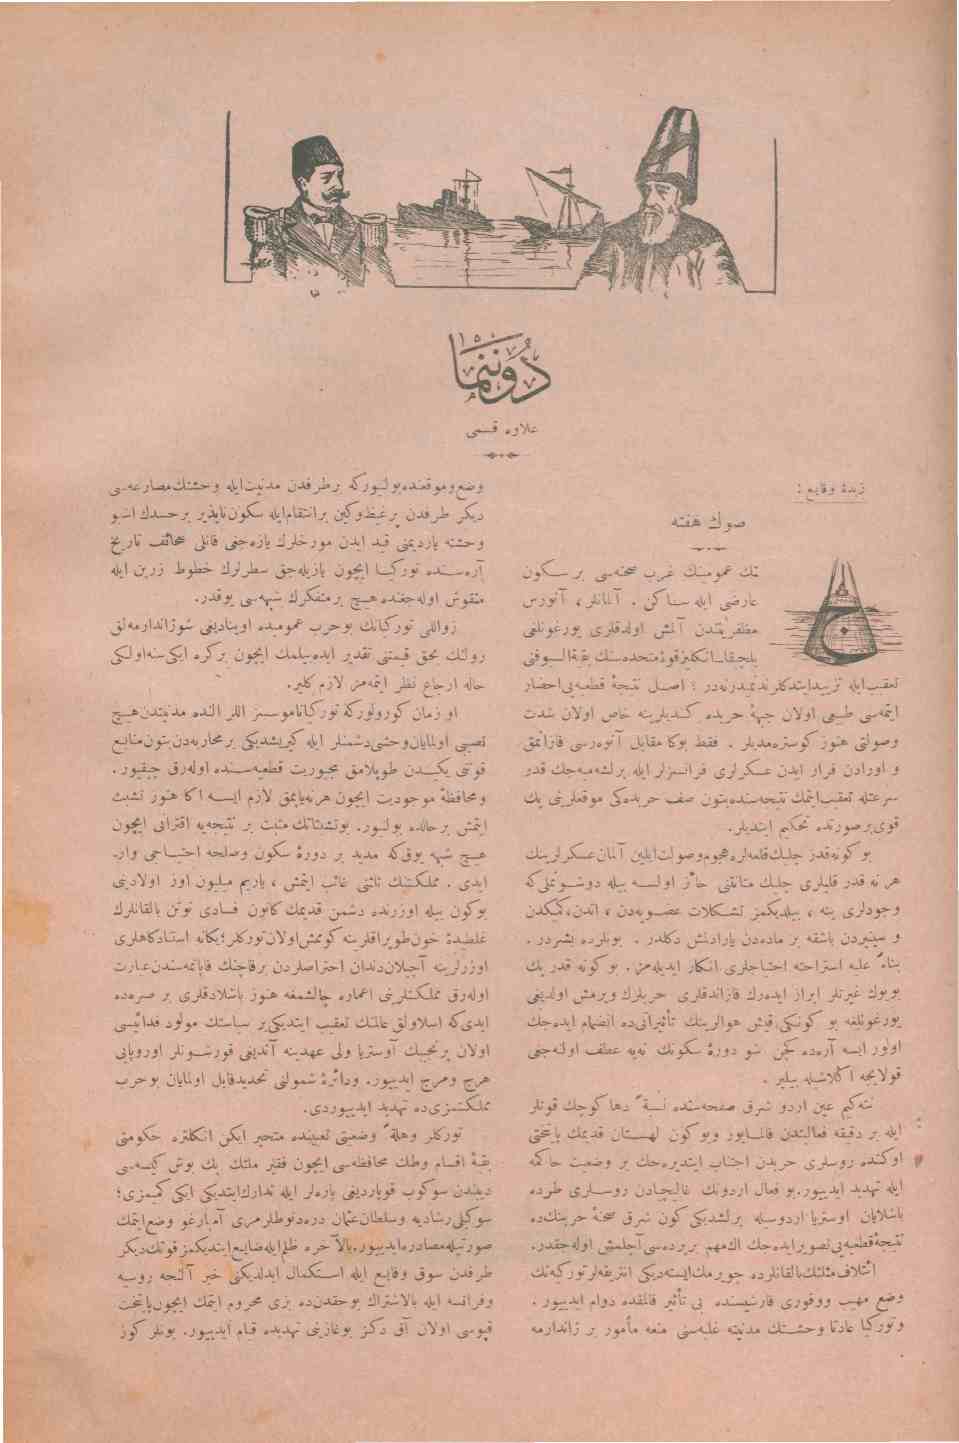 دوننما
علاوه قسمی
زبدهٔ وقایع :
صوك هفته
حربك عمومینك غرب صحنه‌سی بر سكون
عارضی ایله ساكن . آلمانلر ، آنورس
مظفریتندن آلمش اولدقلری یورغونلغی
بلجیقا ـ انكلیز قوهٔ متحده‌سنك بقیةالسیوفنی
تعقیب ایله تزیید ایتدكلرندنمیدر نه‌در ؛ اصل نتیجهٔ قطعیه‌یی احضار
ایتمه‌سی طبیعی اولان جبههٔ حربده كندیلرینه خاص اولان شدت
وصولتی هنوز كوستره‌مدیلر . فقط بوكا مقابل آنورسی قازانمق
و اورادن فرار ایدن عسكرلری فرانسزلر ایله برلشه‌میه‌جك قدر
سرعتله تعقیب ایتمك نتیجه‌سنده بتون صف حربده‌كی موقعلرینی پك
قوی بر صورتده تحكیم ایتدیلر.
بو كونه قدر چلیك قلعه‌لره هجوم وصولت ایلین آلمان عسكرلرینك
هر نه قدر قلبلری چلیك متانتنی حائز اولسه بیله دوشونملی كه
وجودلری ینه ، بیلدیكمز تشكلات عضویه‌دن ، اتدن، كمیكدن
و سینیردن باشقه بر ماده‌دن یارادلمش دكلدر . بونلرده بشردر .
بناءً علیه استراحته احتیاجلری انكار ایدیله‌مز. بو كونه قدر پك
بویوك غیرتلر ابراز ایده‌رك قازاندقلری حربلرك ویرمش اولدیغی
یورغونلغه بو كونكی قیش هوالرینك تأثیراتی ده انضمام ایده‌جك
اولور ایسه آره‌ده كچن شو دورهٔ سكونك نه‌یه عطف اولنه‌جغی
قولایجه اكلاشیله بیلیر .
نته‌كیم عین اردو شرق صفحه‌سنده نسبةً دها كوچك قوتلر
ایله بر دقیقه فعالیتدن قالمایور وبو كون لهستان قدیمك پایتختی
اوكنده روسلری حربدن اجتناب ایتدیره‌جك بر وضعیت حاكمه
ایله تهدید ایدییور. بو فعال اردونك غالیچیادن روسلری طرده
باشلایان اوستریا اردوسیله برلشدیكی كون شرق صحنهٔ حربنك ده
نتیجهٔ قطعیه‌یی تصویر ایده‌جك اك مهم بر پرده‌سی آچلمش اوله‌جقدر.
ائتلاف مثلثك بالقانلرده چویرمك ایسته‌دیكی انتریقه‌لر توركیه‌نك
وضع مهیب ووقوری قارشیسنده بی تأثیر قالمقده دوام ایدییور .
وتوركیا عادتا وحشتك مدنیته غلبه‌سنی منعه مأمور بر ژاندارمه
وضع وموقعنده بولنیور كه بر طرفدن مدنیت ایله وحشتك مصارعه‌سی
دیكر طرفدن پر غیظ وكین بر انتقام ایله سكون ناپذیر بر حسدك اشبو
وحشته یاردیمنی قید ایدن مورخلرك یازه‌جغی قانلی صحائف تاریخ
آره‌سنده توركیا ایچون یازیله‌جق سطرلرك خطوط زرین ایله
منقوش اوله‌جغنده هیچ بر متفكرك شبهه‌سی یوقدر.
زواللی توركیانك بو حرب عمومیده اوینادیغی شو ژاندارمه‌لق
رولنك بحق قیمتنی تقدیر ایده‌بیلمك ایچون بر كره ایكی سنه اولكی
حاله ارجاع نظر ایتمه‌مز لازم كلیر.
او زمان كورولور كه توركیا ناموسسز اللر النده مدنیتدن هیچ
نصیبی اولمایان وحشی دشمنلر ایله كیریشدیكی بر محاربه‌دن بتون منابع
قوتنی یكیدن طوپلامق مجبوریت قطعیه‌سنده اوله‌رق چیقیور .
ومحافظهٔ موجودیت ایچون هر نه یاپمق لازم ایسه اكا هنوز تشبث
ایتمش بر حالده بولنیور. بو تشبثاتك مثبت بر نتیجه‌یه اقترانی ایچون
هیچ شبهه یوق كه مدید بر دورهٔ سكون وصلحه احتیاجی وار-
ایدی . مملكتنك ثلثنی غائب ایتمش ، یاریم میلیون اوز اولادینی
بو كون بیله اوزرنده دشمن قدیمك كانون فسادی توتن بالقانلرك
غلطیدهٔ خون طوپراقلرینه كوممش اولان توركلر؛ یكانه استنادكاهلری
اوزرلرینه آچیلان دندان احتراصلردن برقاچنك قاپانمه‌سندن عبارت
اوله‌رق مملكتلرینی اعماره چالشمغه هنوز باشلادقلری بر صره‌ده
ایدی كه اسلاولق عالمنك تعقیب ایتدیكی بر سیاستك مولود فدائیسی
اولان پرنچیپك آوستریا ولی عهدینه آتدیغی قورشونلر اوروپایی
هرج ومرج ایدییور. ودائرهٔ شمولنی تحدید قابل اولمایان بو حرب
مملكتمزی ده تهدید ایدییوردی.
توركلر وهلةً وضعیتی تعیینده متحیر ایكن انكلتره حكومتی
بقیهٔ اقسام وطنك محافظه‌سی ایچون فقیر ملتك پك بوش كیسه‌سی
دیبندن سوكوب قوپاردیغی پاره‌لر ایله تدارك ایتدیكی ایكی كمیمزی؛
سوكیلی رشادیه وسلطان عثمان دره‌دنوطلرمزی آمبارغو وضع ایتمك
صورتیله مصادره ایدییور. بالآخره ظلم ایله ضایع ایتدیكمز قوتك دیكر
طرفدن سوق وقایع ایله استكمال ایدلدیكنی خبر آلنجه روسیه
وفرانسه ایله بالاشتراك بو حقدن ده بزی محروم ایتمك ایچون پایتخت
قپوسی اولان آق دكز بوغازینی تهدیده قیام ایدییور. بونلر كوز